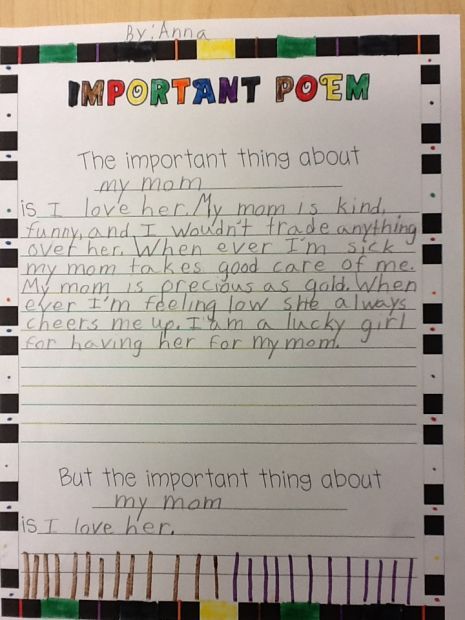 By: Anna
IMPORTANT POEM
The important thing about
my mom
is I love her. My mom is kind,
funny, and I woudn't trade anything
over her. When ever I'm sick
my mom takes good care of me.
My mom is precious as gold. When
ever I'm feeling low she always
cheers me up. I am a lucky girl
for having her for my mom.
But the important thing about
my mom
is I love her.